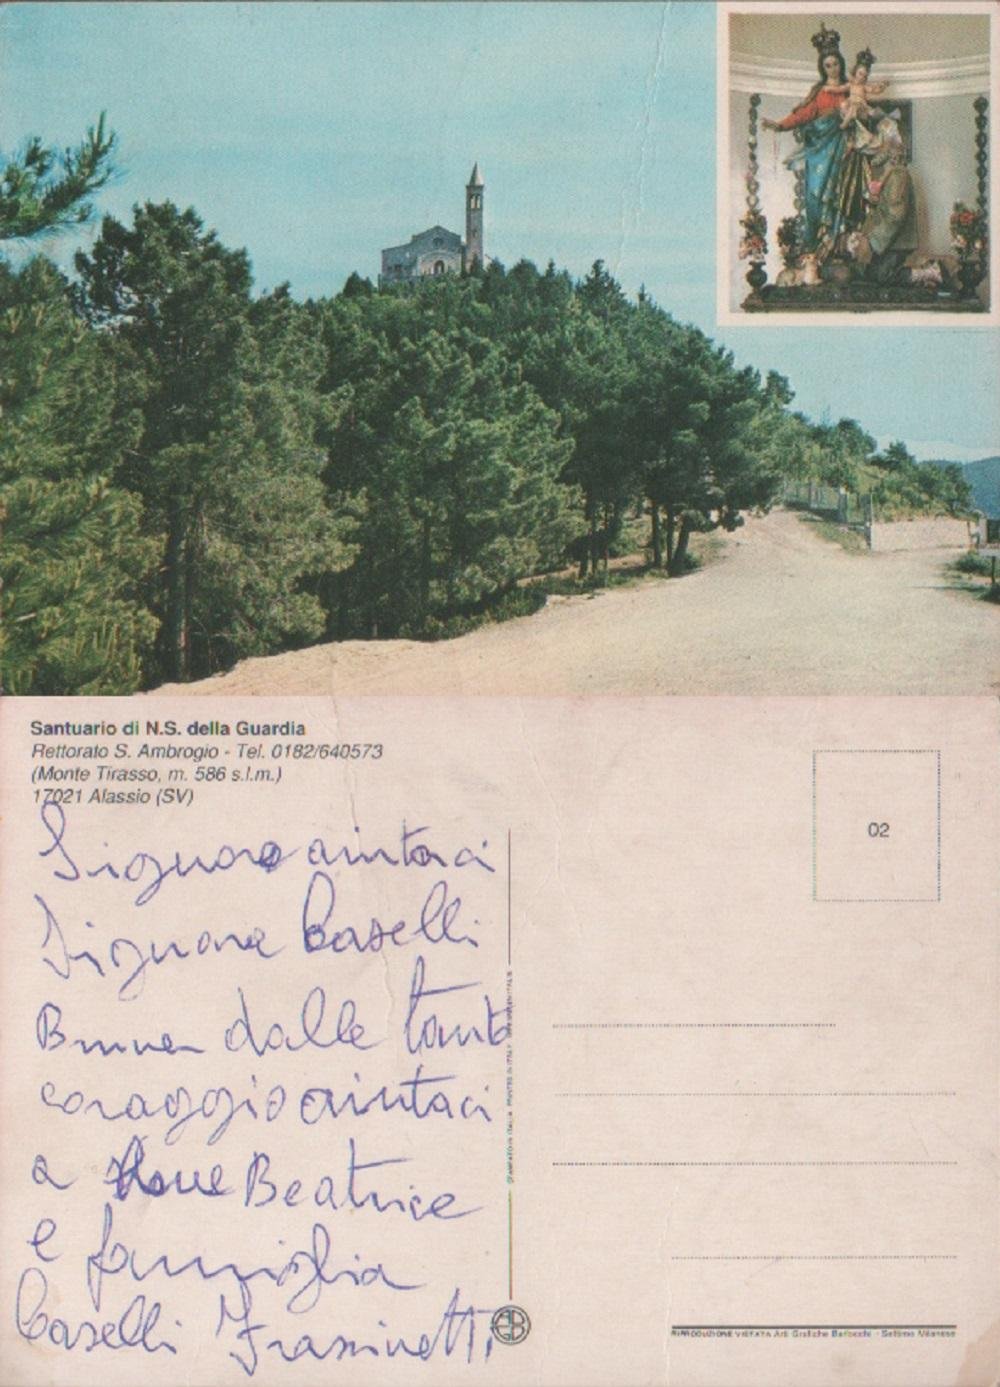 Santuario di N.S. della Guardia
Rettorato S. Ambrogio - Tel. 0182/640573
(Monte Tirasso, m. 586 s.l.m.)
17021 Alassio (SV)
02
Signore aiutaci
Signora Caselli
dalle tanto
coraggio aiutaci
a Beatrice
e famiglia
Caselli Frassinetti
STAMPATO IN ITALIA PRINTED IN ITALY
RIPRODUZIONE VIETATA Arti Grafiche Barlocchi - Settimo Milanese